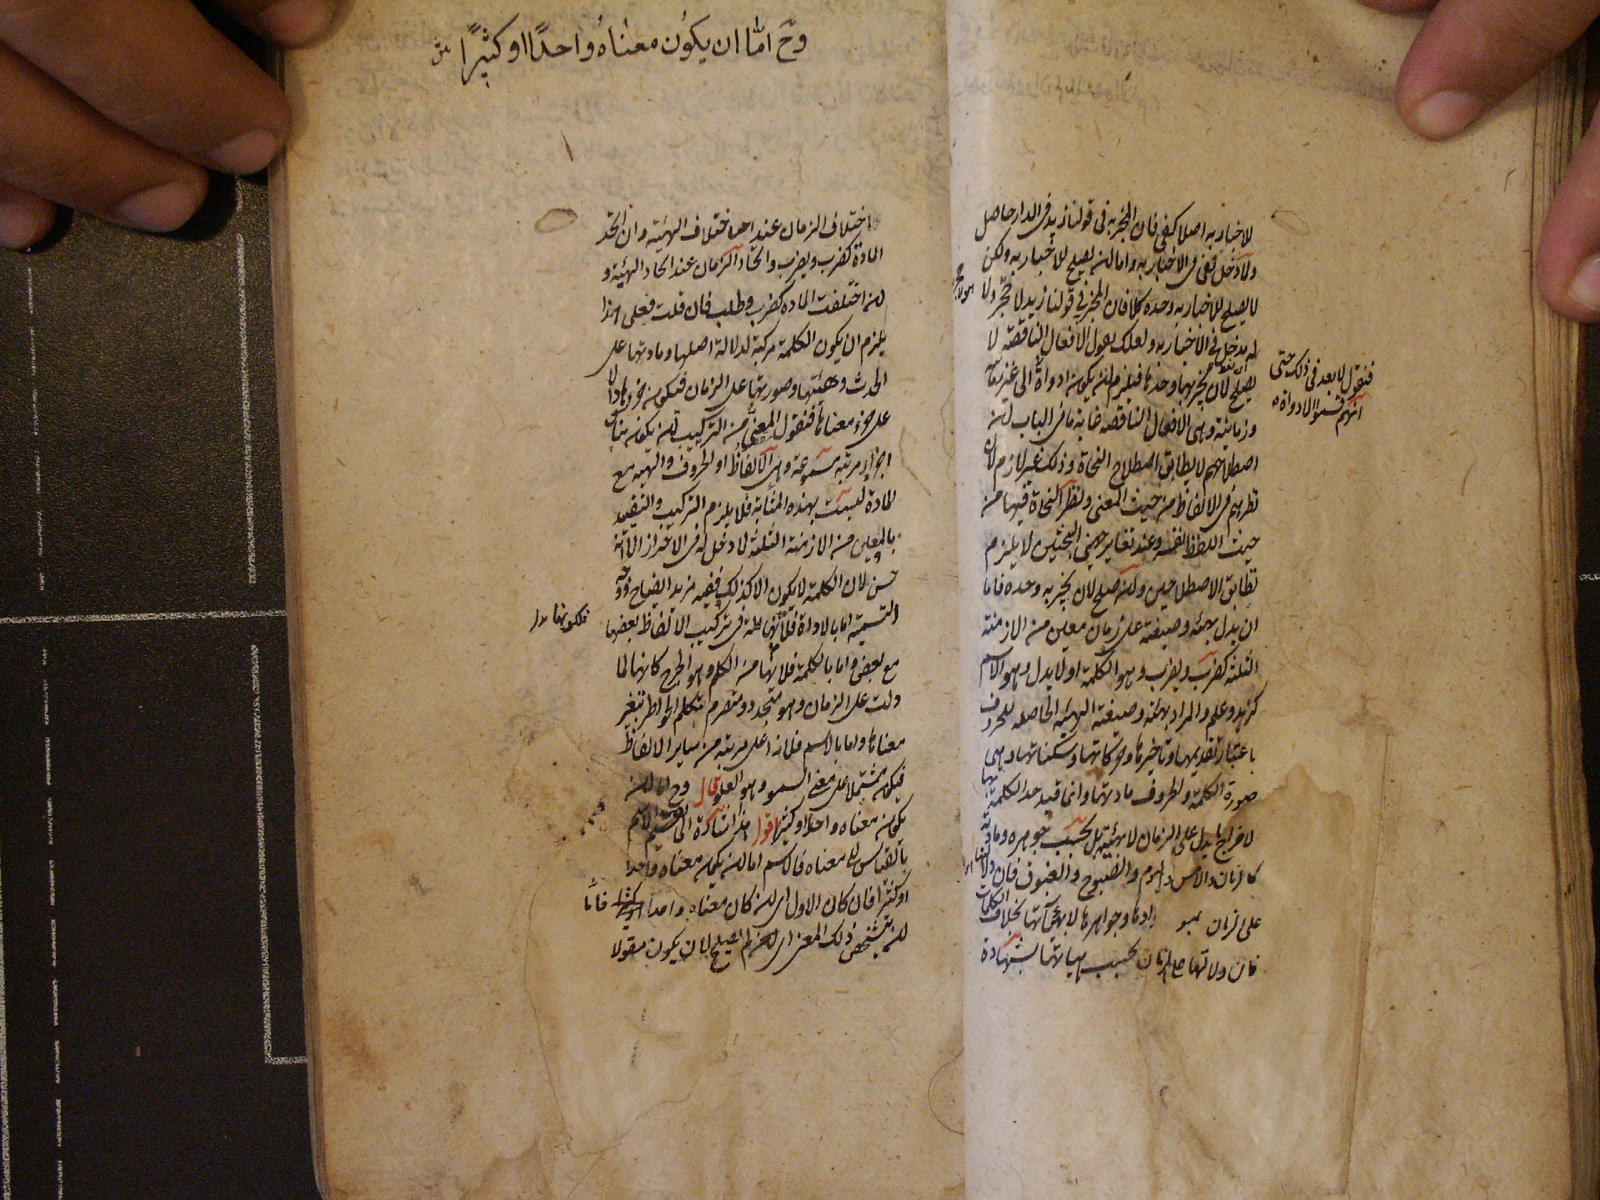 لاخبار به اصلا كفى فان المخبر به فى قولنا زيد فى الدار حاصل
ولا دخل لفى فى الاخبار به واما لان يصلح للاخبار به ولكن
لا يصلح للاخبار به وحده كلا فان المخبر فى قولنا زيد لا حجر ولا
له مدخل فى الاخبار به ولعلك تقول الافعال الناقصة لا
يصلح لان يخبر بها وحدها فيلزم ان يكون ادواة الى غير زمانية
وزمانية وهى الافعال الناقصة غاية ما فى الباب ان
اصطلاحهم لا يطابق اصطلاح النحاة وذلك غير لازم لان
نظرهم فى الالفاظ من حيث المعنى ونظر النحاة فيها من
حيث اللفظ نفسه وعند تغاير جهتى البحثين لا يلزم
تطابق الاصطلاحين وان صلح لان يخبر به وحده فاما
ان يدل بهيئته وصيغته على زمان معين من الازمنة
الثلثة كضرب ويضرب وهو الكلمة او لا يدل وهو الاسم
كزيد وعلم والمراد بهيئته وصيغته الهيئة الحاصلة للحروف
باعتبار تقديمها وتاخيرها وحركاتها وسكناتها وهى
صورة الكلمة والحروف مادتها وانما قيد حد الكلمة بها
لاخراج ما يدل على الزمان لا بهيئته بل بحسب جوهره ومادته
كالزمان والامس واليوم والصبوح والغبوق فان دلالتها
على الزمان بموادها وجواهرها لا بهيئآتها بخلاف الكلمات
فان دلالتها على الزمان بحسب هيأتها بشهادة
فنقول لا بعد فى ذلك حتى
انهم قسموا الادواة
وح اما ان يكون معناه واحدا او كثيرا
اختلاف الزمان عند اختلاف الهيئة وان اتحد
المادة كضرب ويضرب واتحاد الزمان عند اتحاد الهيئة و
ان اختلفت المادة كضرب وطلب فان قلت فعلى هذا
يلزم ان يكون الكلمة مركبة لدلالة اصلها ومادتها على
الحدث وهيئتها وصورتها على الزمان فيكون جزؤها دالا
على جزء معناها فنقول المعنى من التركيب ان يكون هناك
اجزاء مرتبة مسموعة وهى الالفاظ او الحروف والهيئة مع
المادة ليست بهذه المثابة فلا يلزم التركيب والتقييد
بالمعين من الازمنة الثلثة لا دخل له فى الاحتراز الا انه
حسن لان الكلمة لا يكون الا كذلك ففيه مزيد ايضاح ووجه
التسمية اما بالاداة فلانها الة فى تركيب الالفاظ بعضها
مع بعض واما بالكلمة فلانها من الكلم وهو الجرح كانها لما
دلت على الزمان وهو متجدد ومتصرم تكلم الخواطر بتغير
معناها واما بالاسم فلانه اعلى مرتبة من سائر الالفاظ
فيكون مشتملا على معنى السمو وهو العلو قال وح اما ان
يكون معناه واحدا او كثيرا اقول هذا اشارة الى تقسيم الاسم
بالقياس الى معناه فالاسم اما ان يكون معناه واحدا
او كثيرا فان كان الاول اى ان كان معناه واحدا فاما
ان يتشخص ذلك المعنى اى لم يصلح لان يكون مقولا